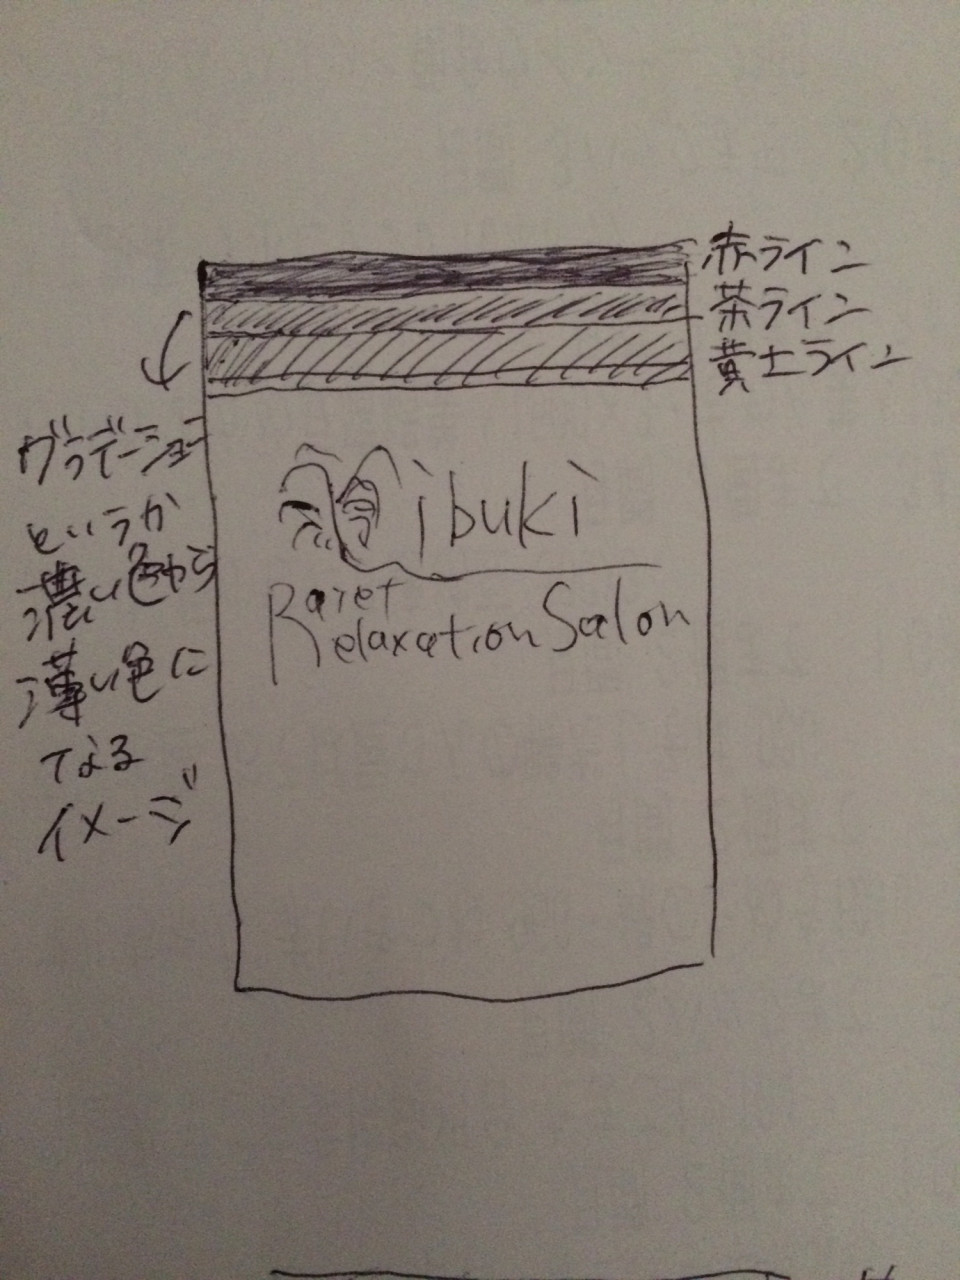 赤ライン
茶ライン
黄土ライン
ヴラデーション
というか
濃い色から
薄い色に
てなる
イメージ
ibuki
Relaxation Salon